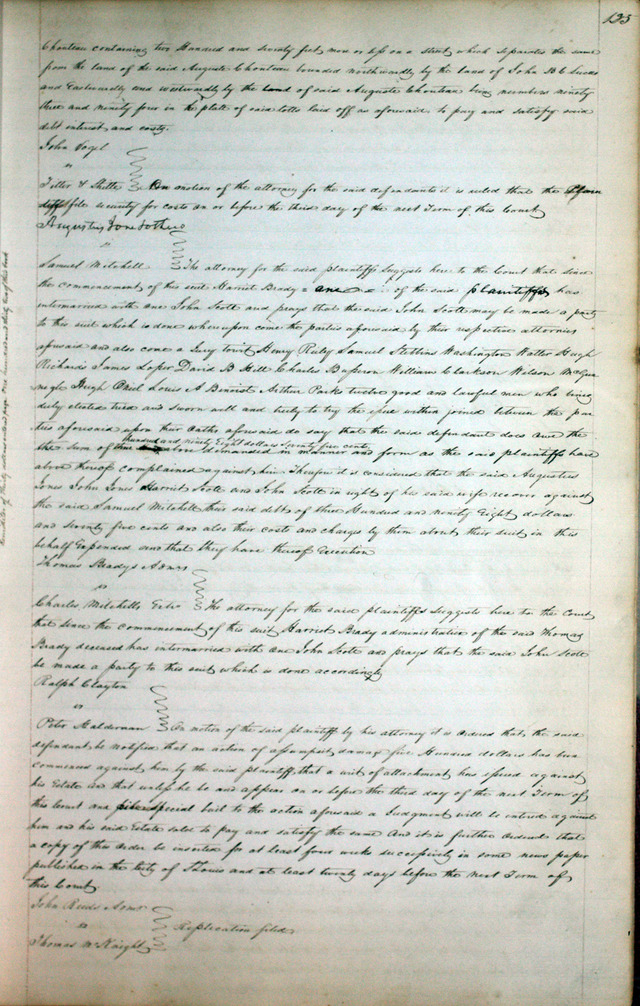 135
Chouteau containing two Hundred and seventy feet more or less on a street which separates the same
from the land of the said Auguste Chouteau bounded northwardly by the land of John B C Lucas
and Eastwardly and westwardly by the land of said Auguste Chouteau being numbers ninety
three and ninety four in the platt of said lotts laid off as aforesaid to pay and satisfy said
debt interest and costs.
John Vogel
vs
On motion of the attorney for the said defendants it is ruled that the Plain
tiff file security for costs on or before the third day of the next Term of this Court
Augustus Jones & others
vs
Samuel Mitchell The attorney for the said plaintiffs suggests here to the Court that since
the commencement of this suit Harriet Brady one of the said plaintiffs has
intermarried with one John Scott and prays that the said John Scott may be made a party
to this suit which is done whereupon come the parties aforesaid by their respective attornies
aforesaid and also come a Jury towit Henry Samuel Stebbins Washington Walter Hugh
Richards James Loper David B Hill Charles William Clarkson Wilson
Hugh Oneil Louis A Benoist Arthur Parks twelve good and lawful men who being
duly elected tried and sworn well and truly to try the issue within joined between the par
ties aforesaid upon their Oaths aforesaid do say that the said defendant does owe the
hundred and ninety Eight dollars seventy five cents
the sum of three above demanded in manner and form as the said plaintiffs have
above thereof complained against him Therefore it is considered that the said Augustus
Jones John Jones Harriet Scott and John Scott in right of his said wife recover against
the said Samuel Mitchell their said debt of three Hundred and ninety Eight dollars
and seventy five cents and also their costs and charges by them about their suit in this
behalf Expended and that they have thereof Execution
Thomas Bradys Admrs
vs
Charles Mitchells The attorney for the said plaintiffs suggests here to the Court
that since the commencement of this suit Harriet Brady administratrix of the said Thomas
Brady deceased has intermarried with one John Scott and prays that the said John Scott
be made a party to this suit which is done accordingly
Ralph Clayton
vs
Peter Halderman On motion of the said plaintiff by his attorney it is ordered that the said
defendant be notified that an action of assumpsit damage five Hundred dollars has been
commenced against him by the said plaintiff, that a writ of attachment has issued against
his Estate and that unless he be and appear on or before the third day of the next Term of
this Court and file special bail to the action aforesaid a Judgment will be entered against
him and his said Estate sold to pay and satisfy the same And it is further ordered that
a copy of this order be inserted for at least four weeks successively in some news paper
published in the City of St Louis and at least twenty days before the next Term of
this Court
John Reeds Admr
vs
Replication filed
Thomas McKnight